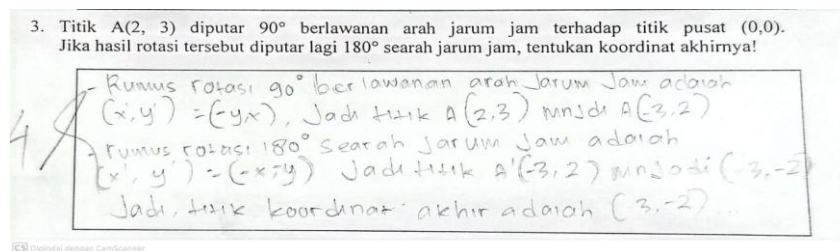 3. Titik A(2, 3) diputar 90° berlawanan arah jarum jam terhadap titik pusat (0,0).
Jika hasil rotasi tersebut diputar lagi 180° searah jarum jam, tentukan koordinat akhirnya!
- Rumus rotasi 90° berlawanan arah Jarum Jam adalah
(x', y') = (-yx), Jadi titik A (2,3) mnjdi A(-3,2)
- rumus rotasi 180° searah Jarum Jam adalah
(x', y') = (-x,-y) Jadi titik A'(-3,2) mnjadi (-3,-2)
Jadi, titik koordinat akhir adalah (3,-2)
CS Dipindai dengan CamScanner